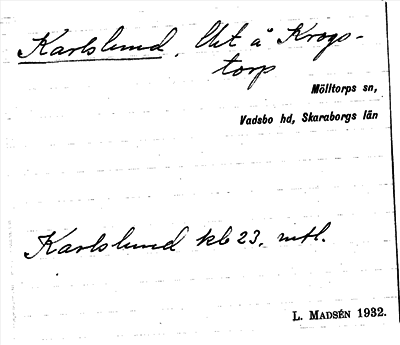 Karlslund. Utt å Krogs-
torp
Mölltorps sn,
Vadsbo hd, Skaraborgs län
Karlslund kb 23. mtl.
L. MADSÉN 1932.